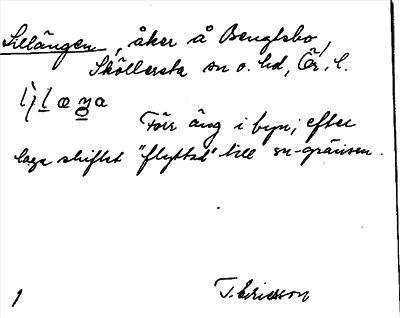 Lillängen, åker å Bengtsbo,
Sköllersta sn o. hd, Ör. l.
Förr äng i byn; efter
laga skiftet "flyttad" till sn-gränsen.
T. Ericsson
1